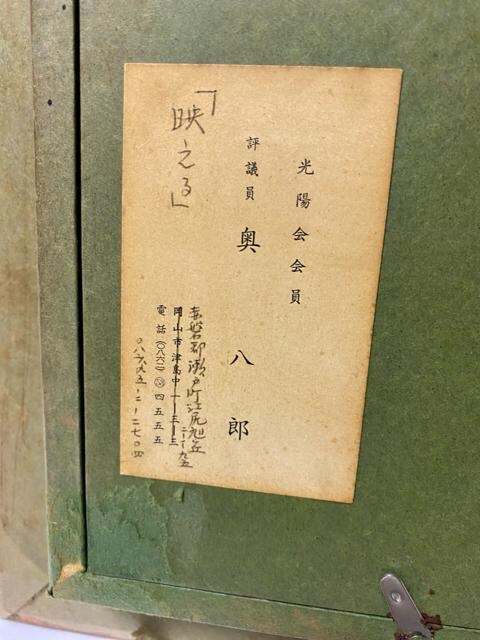 光陽会会員
評議員
奥八郎
赤磐郡瀬戸町江尻旭ヶ丘
二-一九五
岡山市津島中一-三-三
電話(〇八六二)
四五五五
〇八六九五-二-二七〇四
「映える」